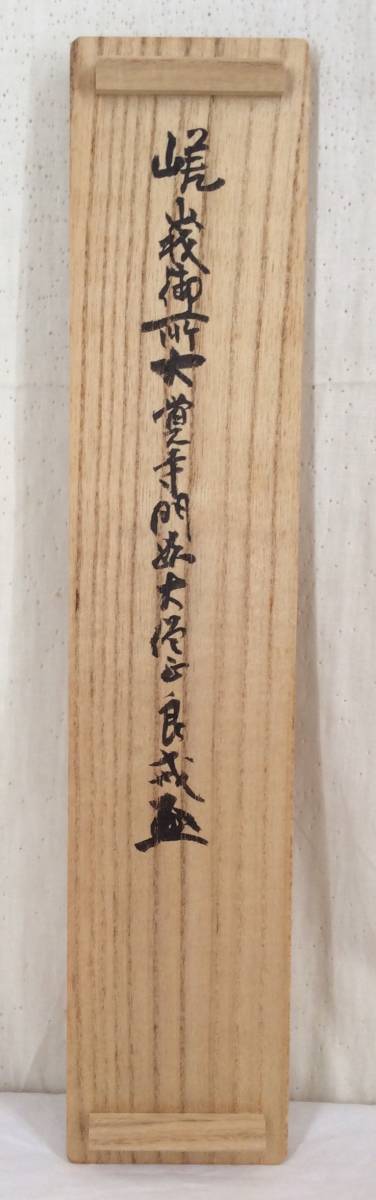 嵯峨御所大覚寺門跡大僧正良戒